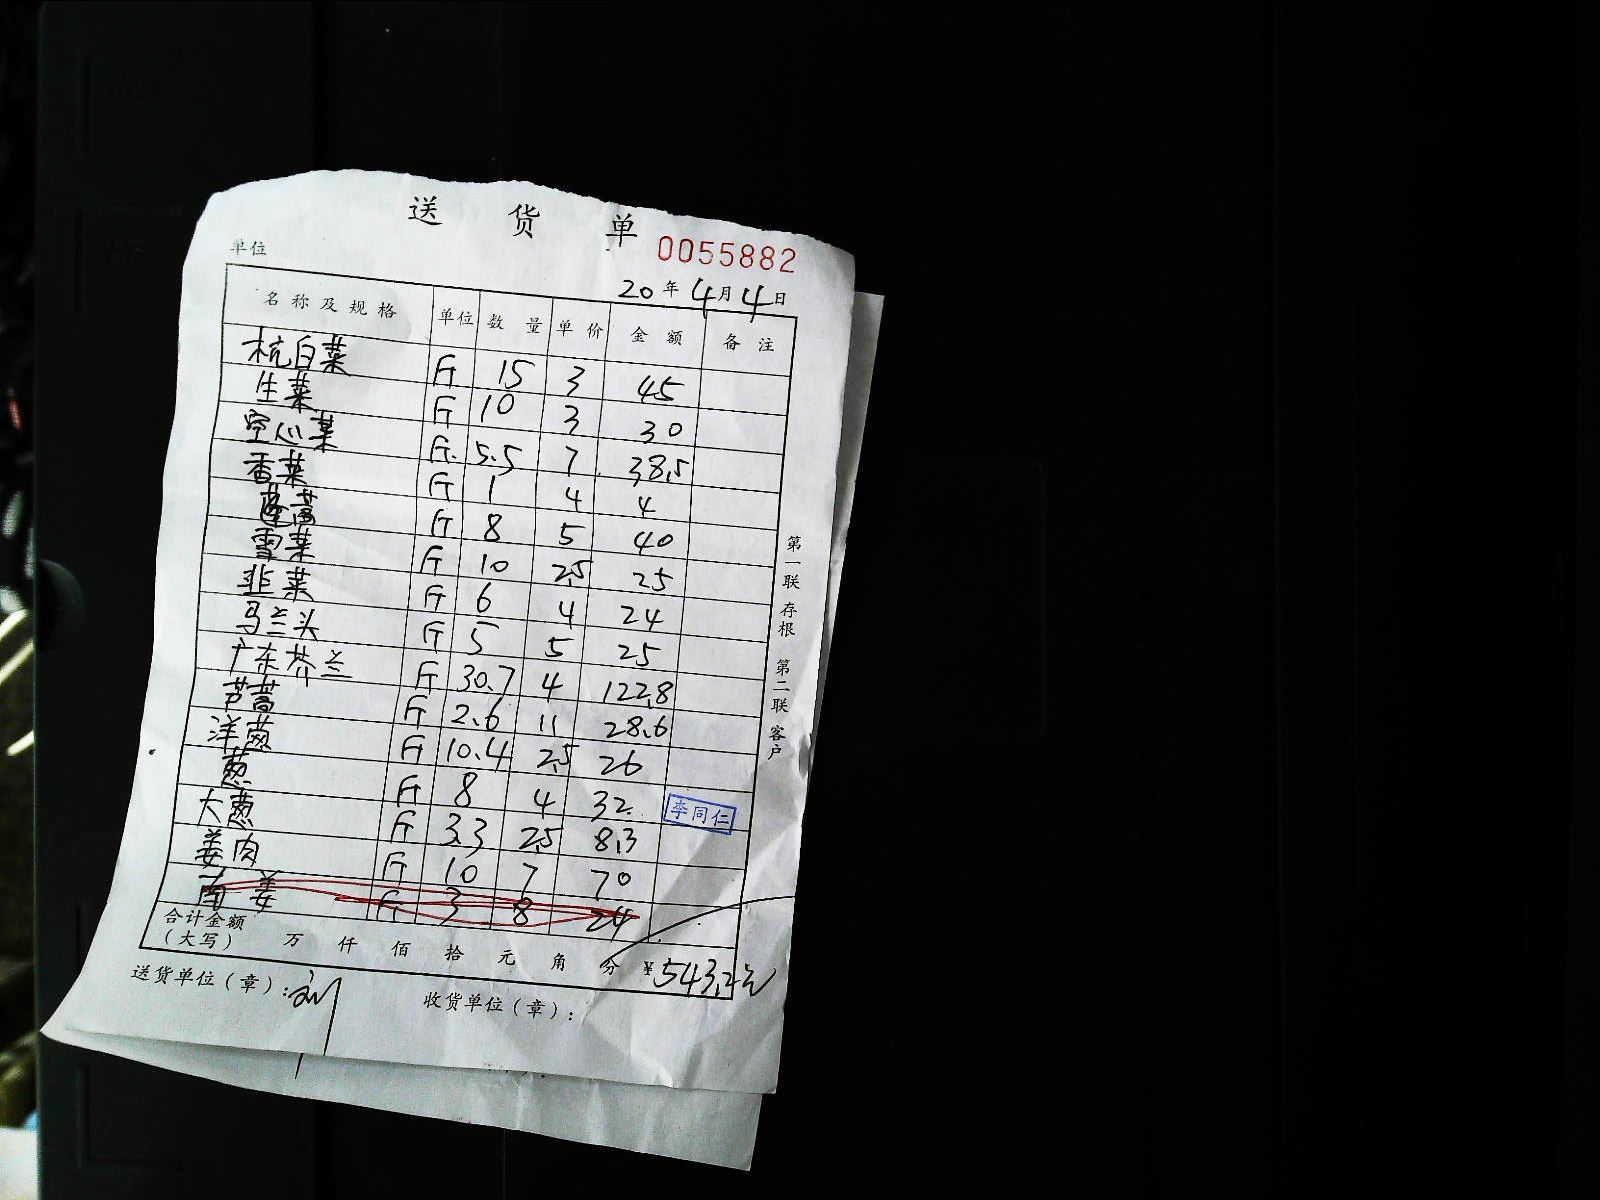 送 货 单
0055882
单位
20 年 4 月 4 日
名称及规格 单位 数量 单价 金额 备注
杭白菜 斤 15 3 45
生菜 斤 10 3 30
空心菜 斤 5.5 7 38.5
香菜 斤 1 4 4
蓬蒿 斤 8 5 40
雪菜 斤 10 2.5 25
韭菜 斤 6 4 24
马兰头 斤 5 5 25
广东芥兰 斤 30.7 4 122.8
芦蒿 斤 2.6 11 28.6
洋葱 斤 10.4 2.5 26
葱 斤 8 4 32
大葱 斤 3.3 2.5 8.3
姜肉 斤 10 7 70
南姜 斤 3 8 24
合计金额
（大写） 万 仟 佰 拾 元 角 分 ¥543.2元
送货单位（章）：刘
收货单位（章）：
第一联 存根 第二联 客户
李同仁